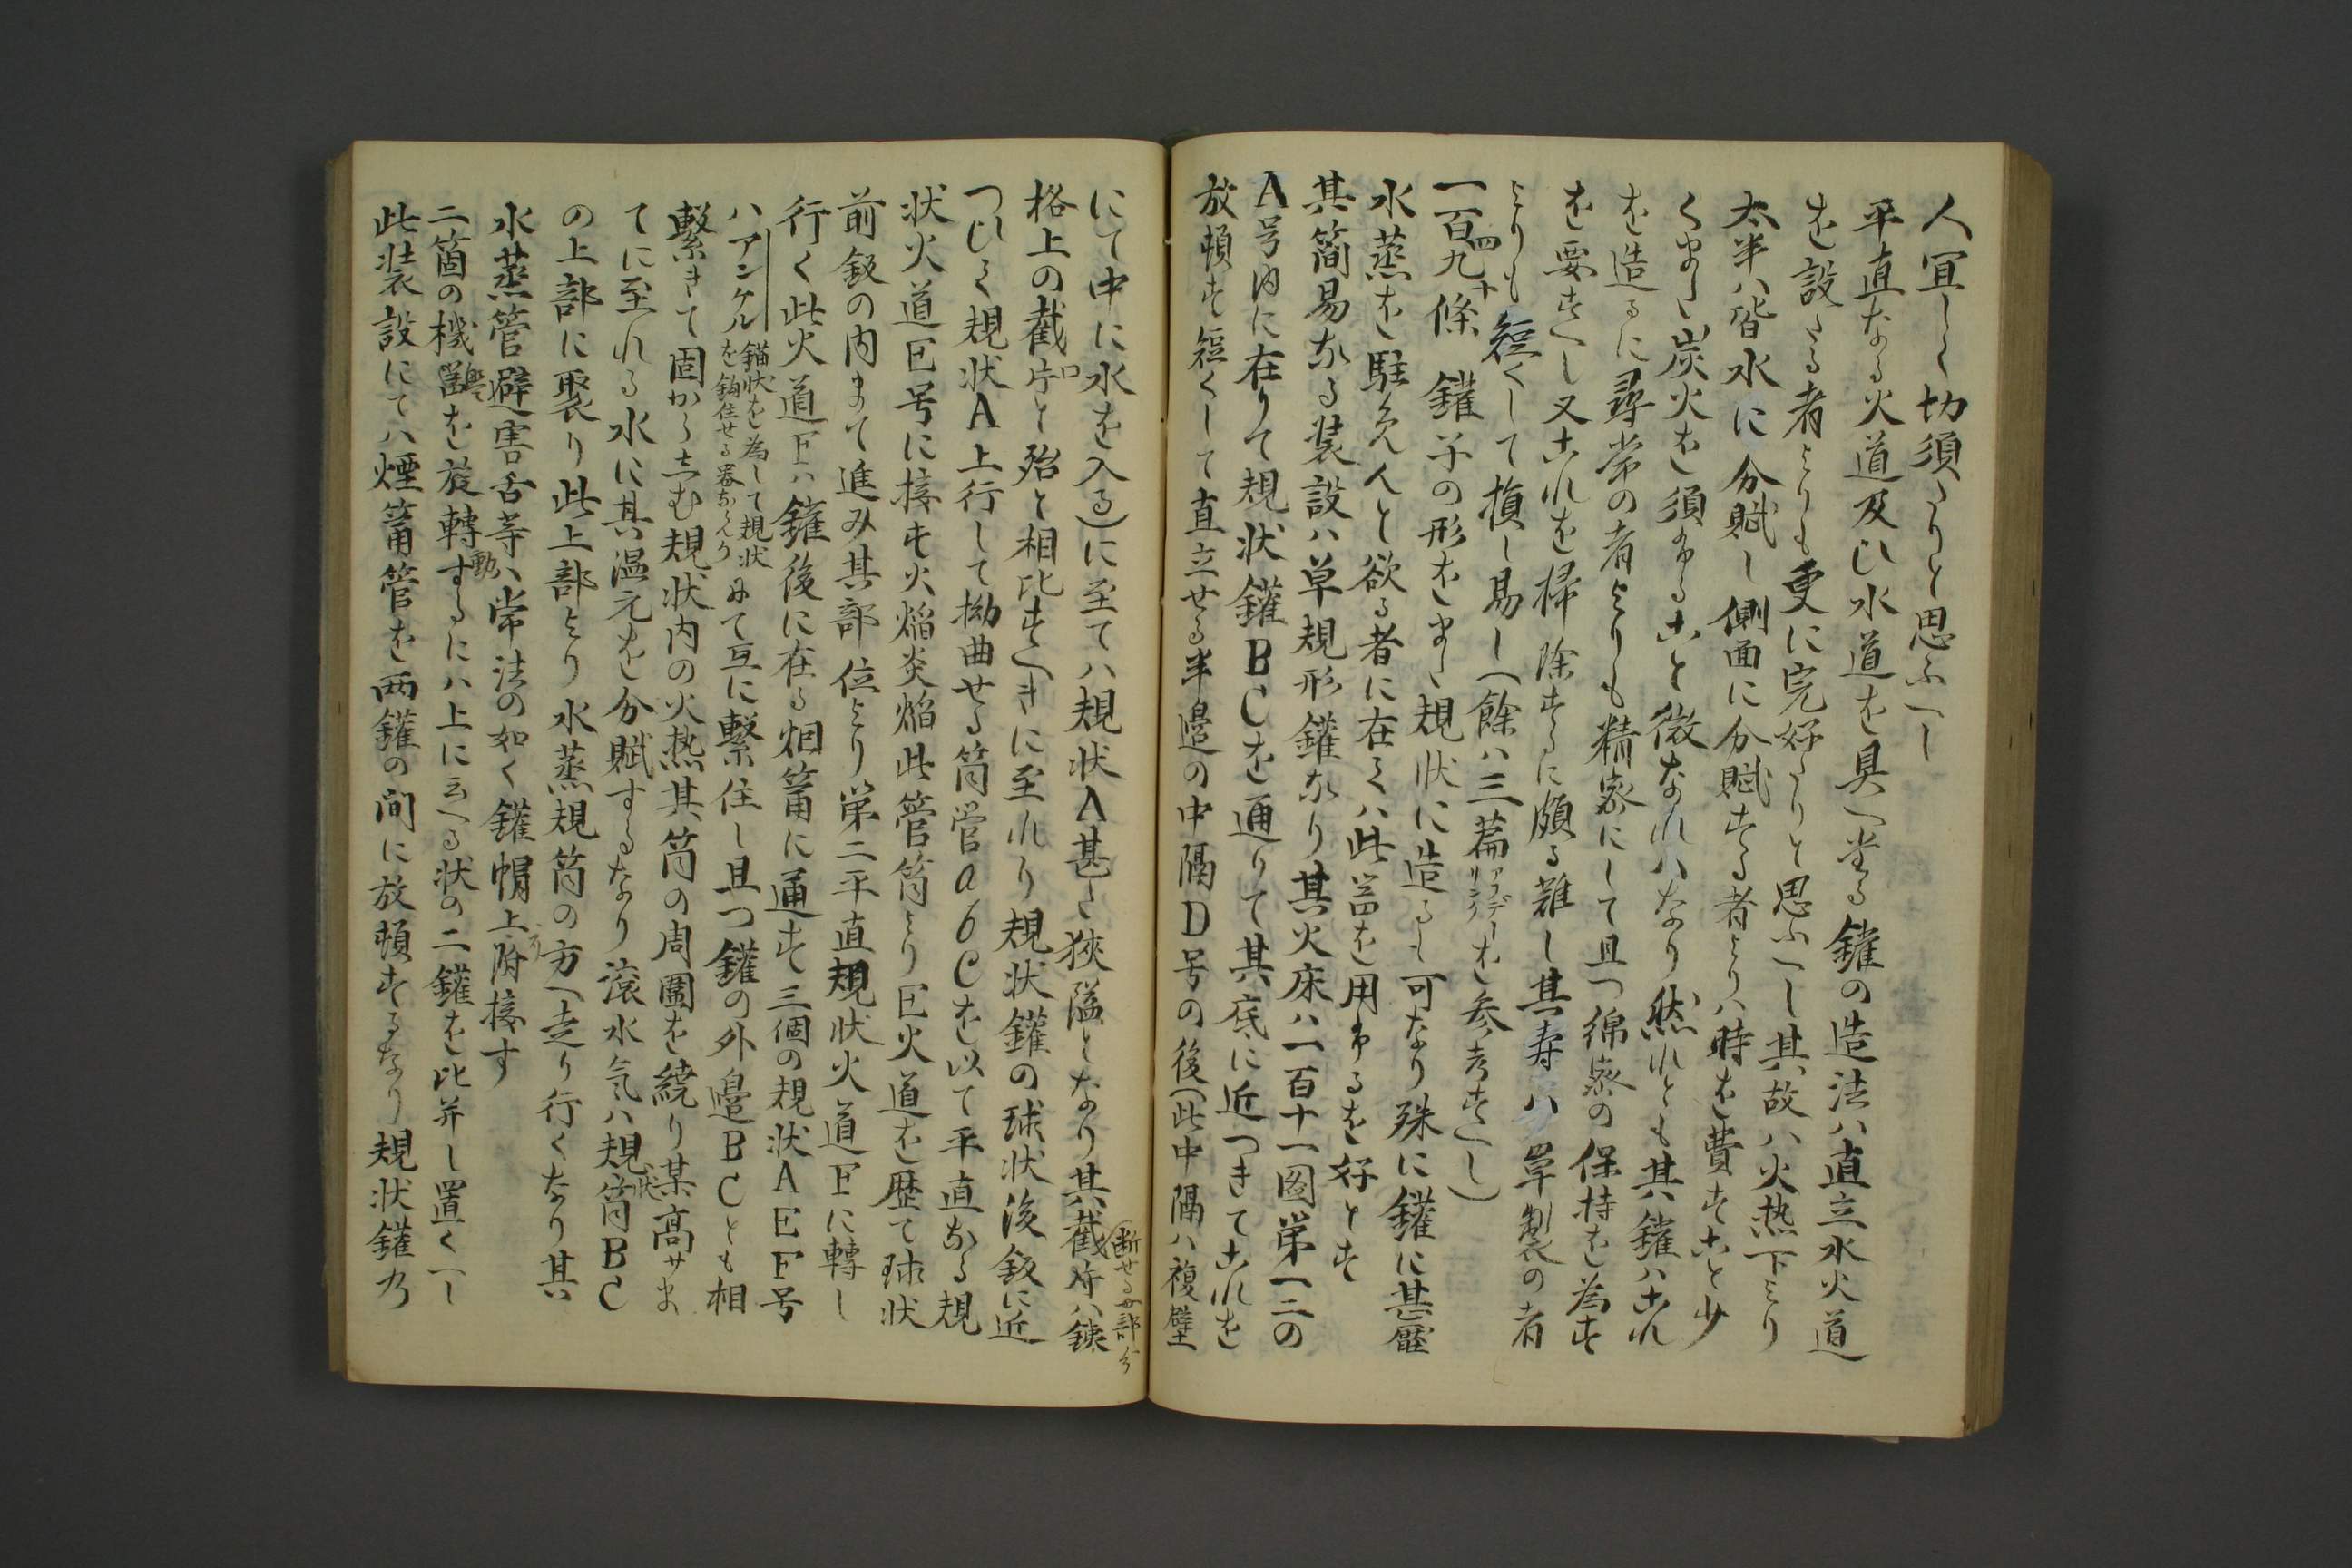 人冝しく切須たりと思ふへし
平直なる火道及ひ水道を具へさる鑵の造法ハ直立水火道
を設たる者よりも更に完好たりと思ふへし其故ハ火热下より
太半ハ皆水に分賦し側面に分賦する者よりハ時を費すこと少
くまた炭火を須ゆること微なれハなり然れとも其鑵ハこれ
を造るに尋常の者よりも精密にして且つ綿密の保持を為す
を要すへし又これを掃除するに頗る難し其寿ハ単製の者
よりも短くして損し易し(餘ハ三篇アフデーリンクを参考すへし)
一百四十九條 鑵子の形をまた規状に造るも可なり殊に鑵に甚壓
水蒸を駐免んと欲る者に在てハ此器を用ゆるを好とす
其簡易なる装設ハ草規形鑵なり其火床ハ一百十一圖第一二の
A号内に在りて規状鑵BCを通りて其底に近つきてこれを
放頓す短くして直立せる半邉の中隔D号の後(此中隔ハ複壁
にて中に水を入る)に至てハ規状A甚た狭隘となり其截断せる部分片ハ鐵
格上の截口片と殆と相比すへきに至れり規状鑵の球状後鈑に近
つひて規状A上行して拗曲せる筒管abCを以て平直なる規
状火道E号に接す火焔炎焔此管筒よりE火道を歴て球状
前鈑の内まて進み其部位より第二平直規状火道Fに轉し
行く此火道Fハ鑵後に在る烟筩に通す三個の規状AEF号
ハアンケル錨状を為して規状を鈎住せる器なりにて互に繋住し且つ鑵の外邉BCとも相
繋きて固からしむ規状内の火热其筒の周圍を繞り某高サま
てに至れる水に其温元を分賦するなり滾水気ハ規状筒BC
の上部に聚り此上部より水蒸規筒の方へ走り行くなり其
水蒸管避害舌等ハ常法の如く鑵帽上に附接す
二箇の機器を旋轉動するにハ上に云へる状の二鑵を比并し置くへし
此装設にてハ煙筩管を两鑵の间に放頓するなり規状鑵乃